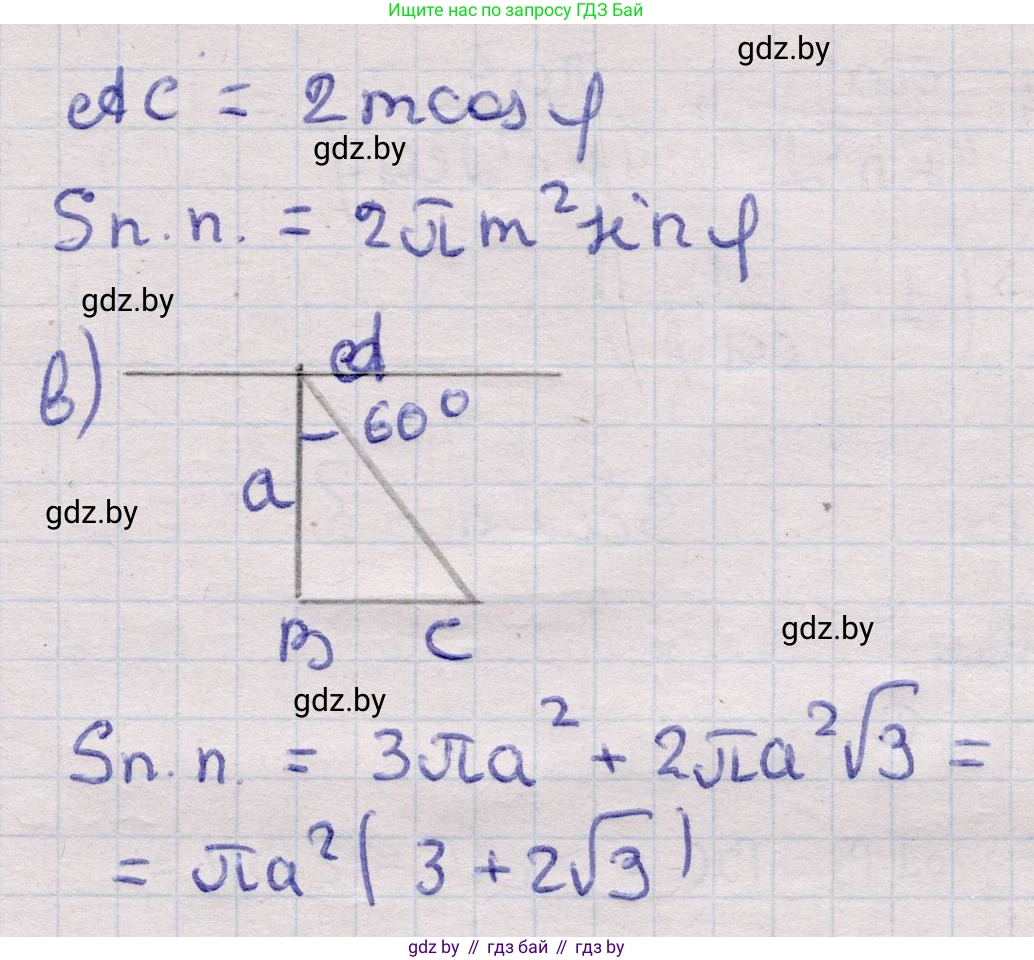 Ищите нас по запросу ГДЗ Бай
gdz.by
AC = 2mcosφ
gdz.by
Sп.п. = 2πm²sinφ
gdz.by
в)
A
60°
a
gdz.by
B C
gdz.by
gdz.by
Sп.п. = 3πa² + 2πa²√3 =
= πa²(3 + 2√3)
gdz.by // гдз бай // гдз by